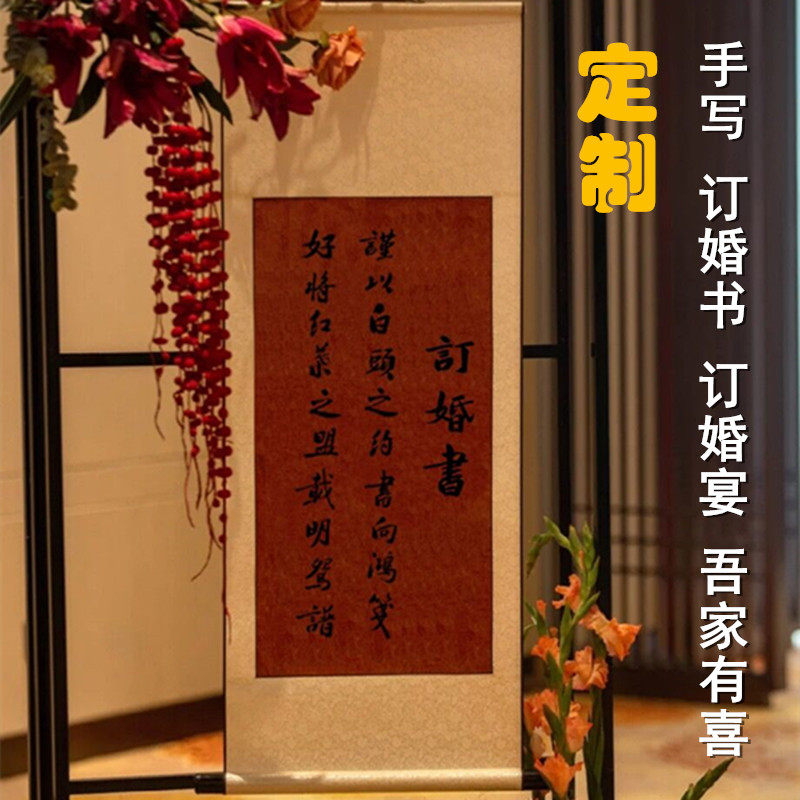 手写 订婚书 订婚宴 吾家有喜
定制
訂婚書
謹以白頭之約書向鴻箋
好將紅葉之盟載明鴛譜